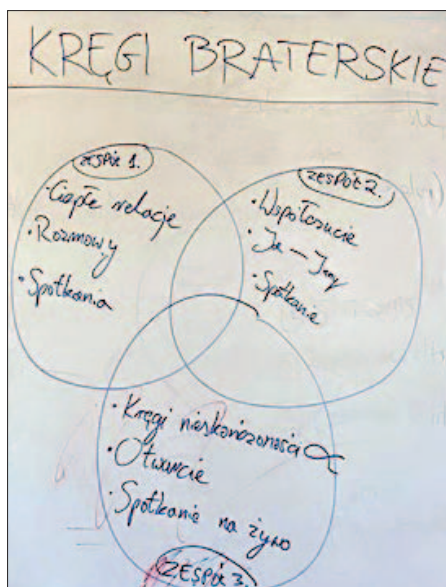 KRĘGI BRATERSKIE
ZESPÓŁ 1.
• Ciepłe relacje
• Rozmowy
• Spotkania
ZESPÓŁ 2.
• Współczucie
• Ja – Inny
• Spotkanie
• Kręgi nieskończoności ∝
• Otwarcie
• Spotkanie na żywo
ZESPÓŁ 3.